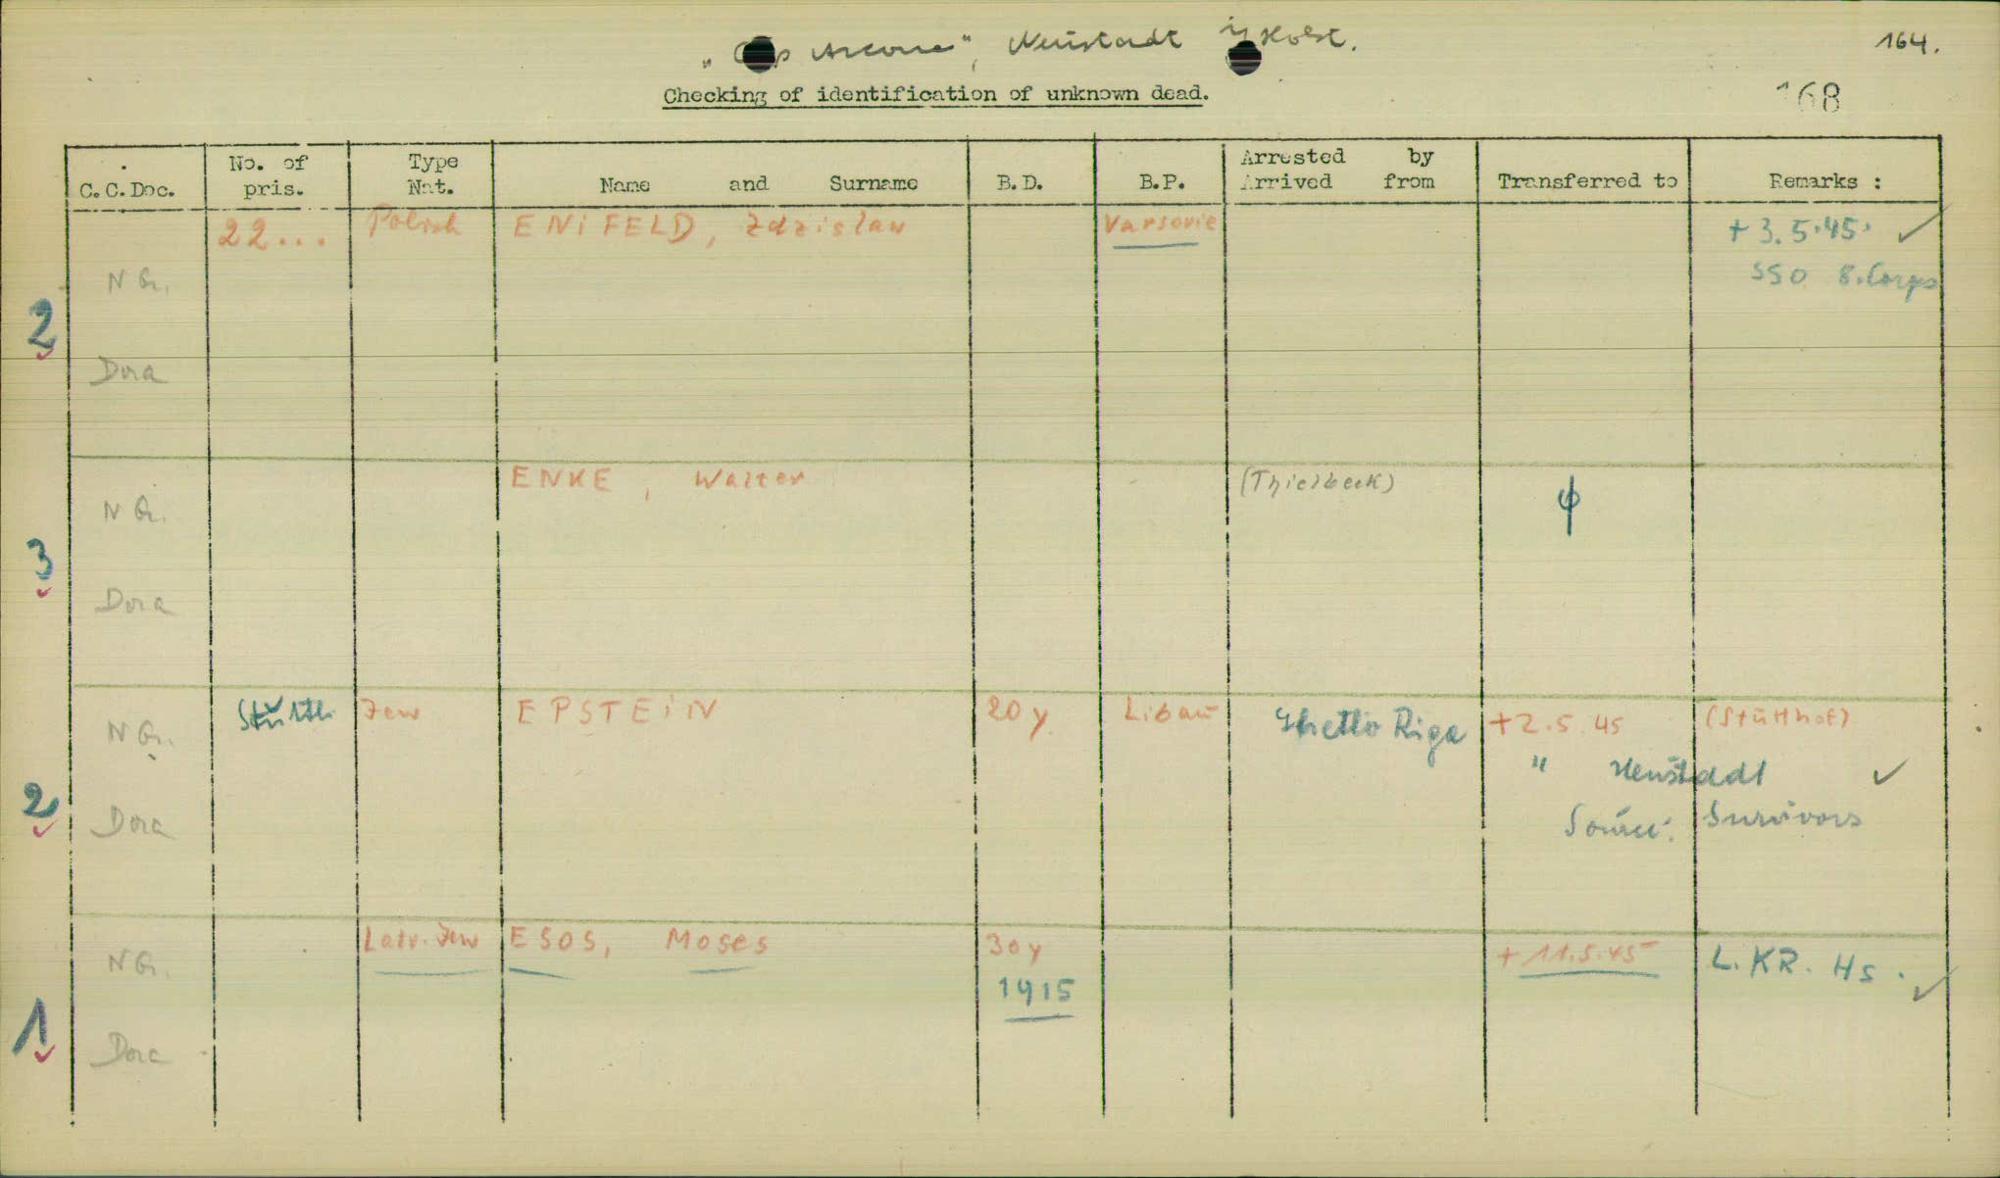 „Cap Arcona", Neustadt i/Holst.
164.
Checking of identification of unknown dead.
168
C.C.Doc. No. of pris. Type Nat. Name and Surname B.D. B.P. Arrested by Arrived from Transferred to Remarks :
22... Polish ENiFELD, Zdzislaw Varsovie + 3.5.45. ✓
N G. SSO 8.Corps
2
Dora
ENKE, Walter (Thielbeck) φ
N G.
3
Dora
Stutth. Jew EPSTEiN 20 y Libau Ghetto Riga +2.5.45 (Stutthof)
N G. " Neustadt ✓
2
Dora Source: Survivors
Latv. Jew ESOS, Moses 30 y + 11.5.45 L.KR. Hs. ✓
N G. 1915
1
Dora